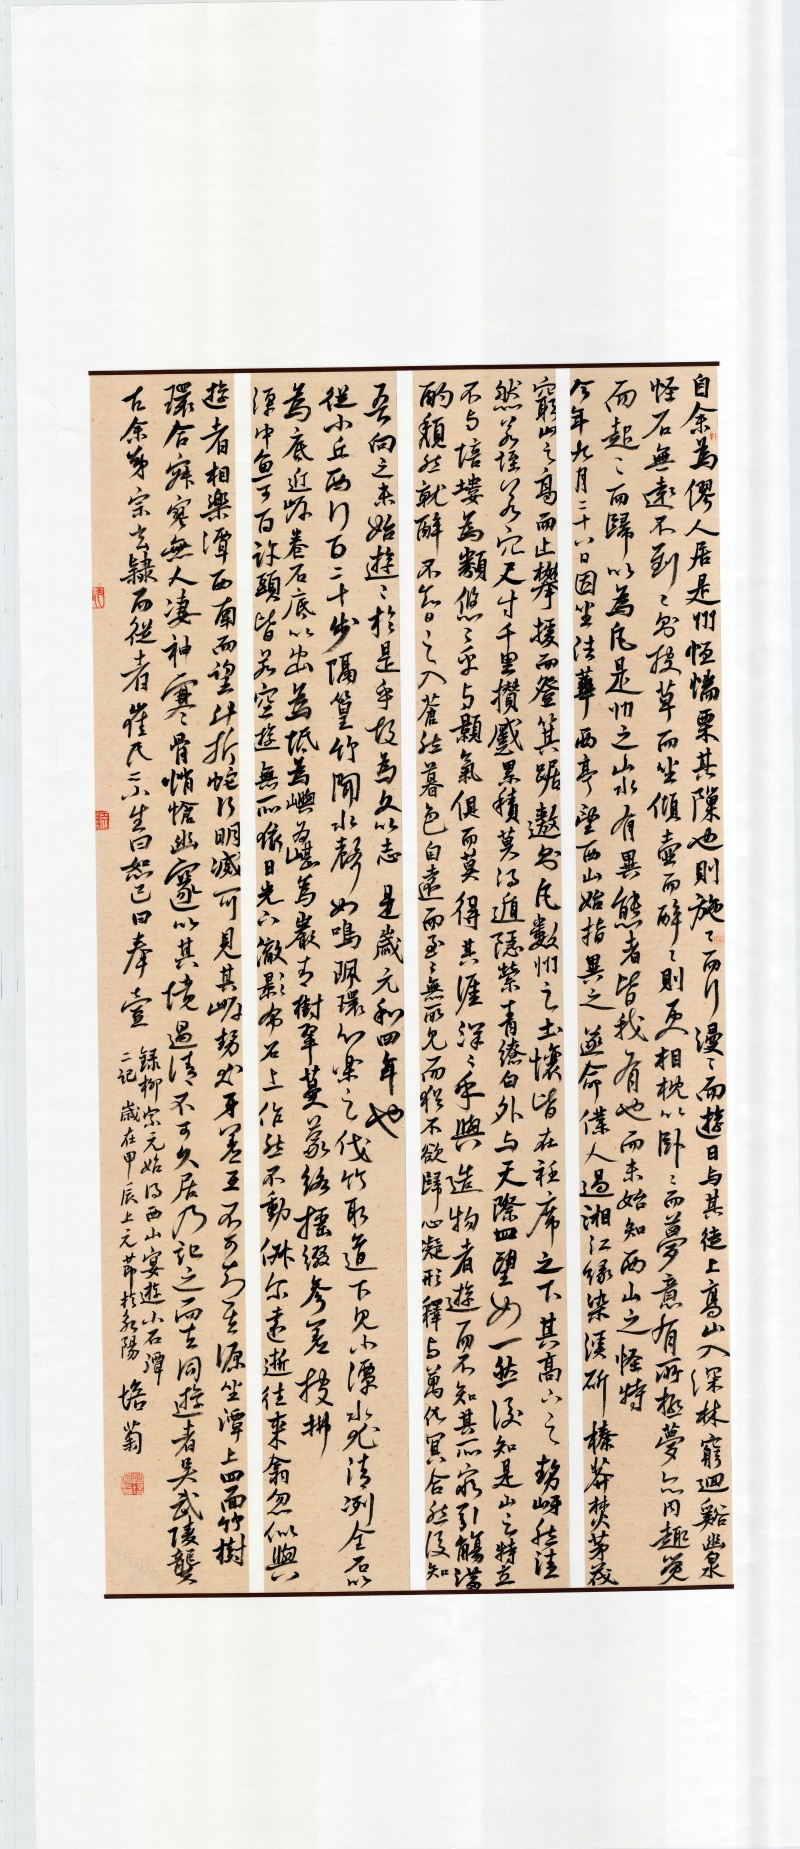 自余為僇人居是州恒惴栗其隟也則施〻而行漫〻而遊日與其徒上高山入深林窮迴谿幽泉
怪石無遠不到〻則披草而坐傾壺而醉〻則更相枕以卧〻而夢意有所極夢亦同趣覺
而起〻而歸以為凡是州之山水有異態者皆我有也而未始知西山之怪特
今年九月二十八日因坐法華西亭望西山始指異之遂命僕人過湘江緣染溪斫榛莽焚茅茷
窮山之高而止攀援而登箕踞遨則凡數州之土壤皆在衽席之下其高下之勢岈然洼
然若垤若穴尺寸千里攢蹙累積莫得遁隱縈青繚白外與天際四望如一然後知是山之特立
不與培塿為類悠〻乎與顥氣俱而莫得其涯洋〻乎與造物者遊而不知其所窮引觴滿
酌頹然就醉不知日之入蒼然暮色自遠而至〻無所見而猶不欲歸心凝形釋與萬化冥合然後知
吾向之未始遊〻於是乎始故為文以志是歲元和四年也
從小丘西行百二十步隔篁竹聞水聲如鳴珮環心樂之伐竹取道下見小潭水尤清冽全石以
為底近岸卷石底以出為坻為嶼為嵁為巖青樹翠蔓蒙絡搖綴參差披拂
潭中魚可百許頭皆若空遊無所依日光下徹影布石上佁然不動俶爾遠逝往來翕忽似與
遊者相樂潭西南而望斗折蛇行明滅可見其岸勢犬牙差互不可知其源坐潭上四面竹樹
環合寂寥無人淒神寒骨悄愴幽邃以其境過清不可久居乃記之而去同遊者吳武陵龔
古余弟宗玄隸而從者崔氏二小生曰恕己曰奉壹
錄柳宗元始得西山宴遊小石潭
二記 歲在甲辰上元節於永陽 培菊